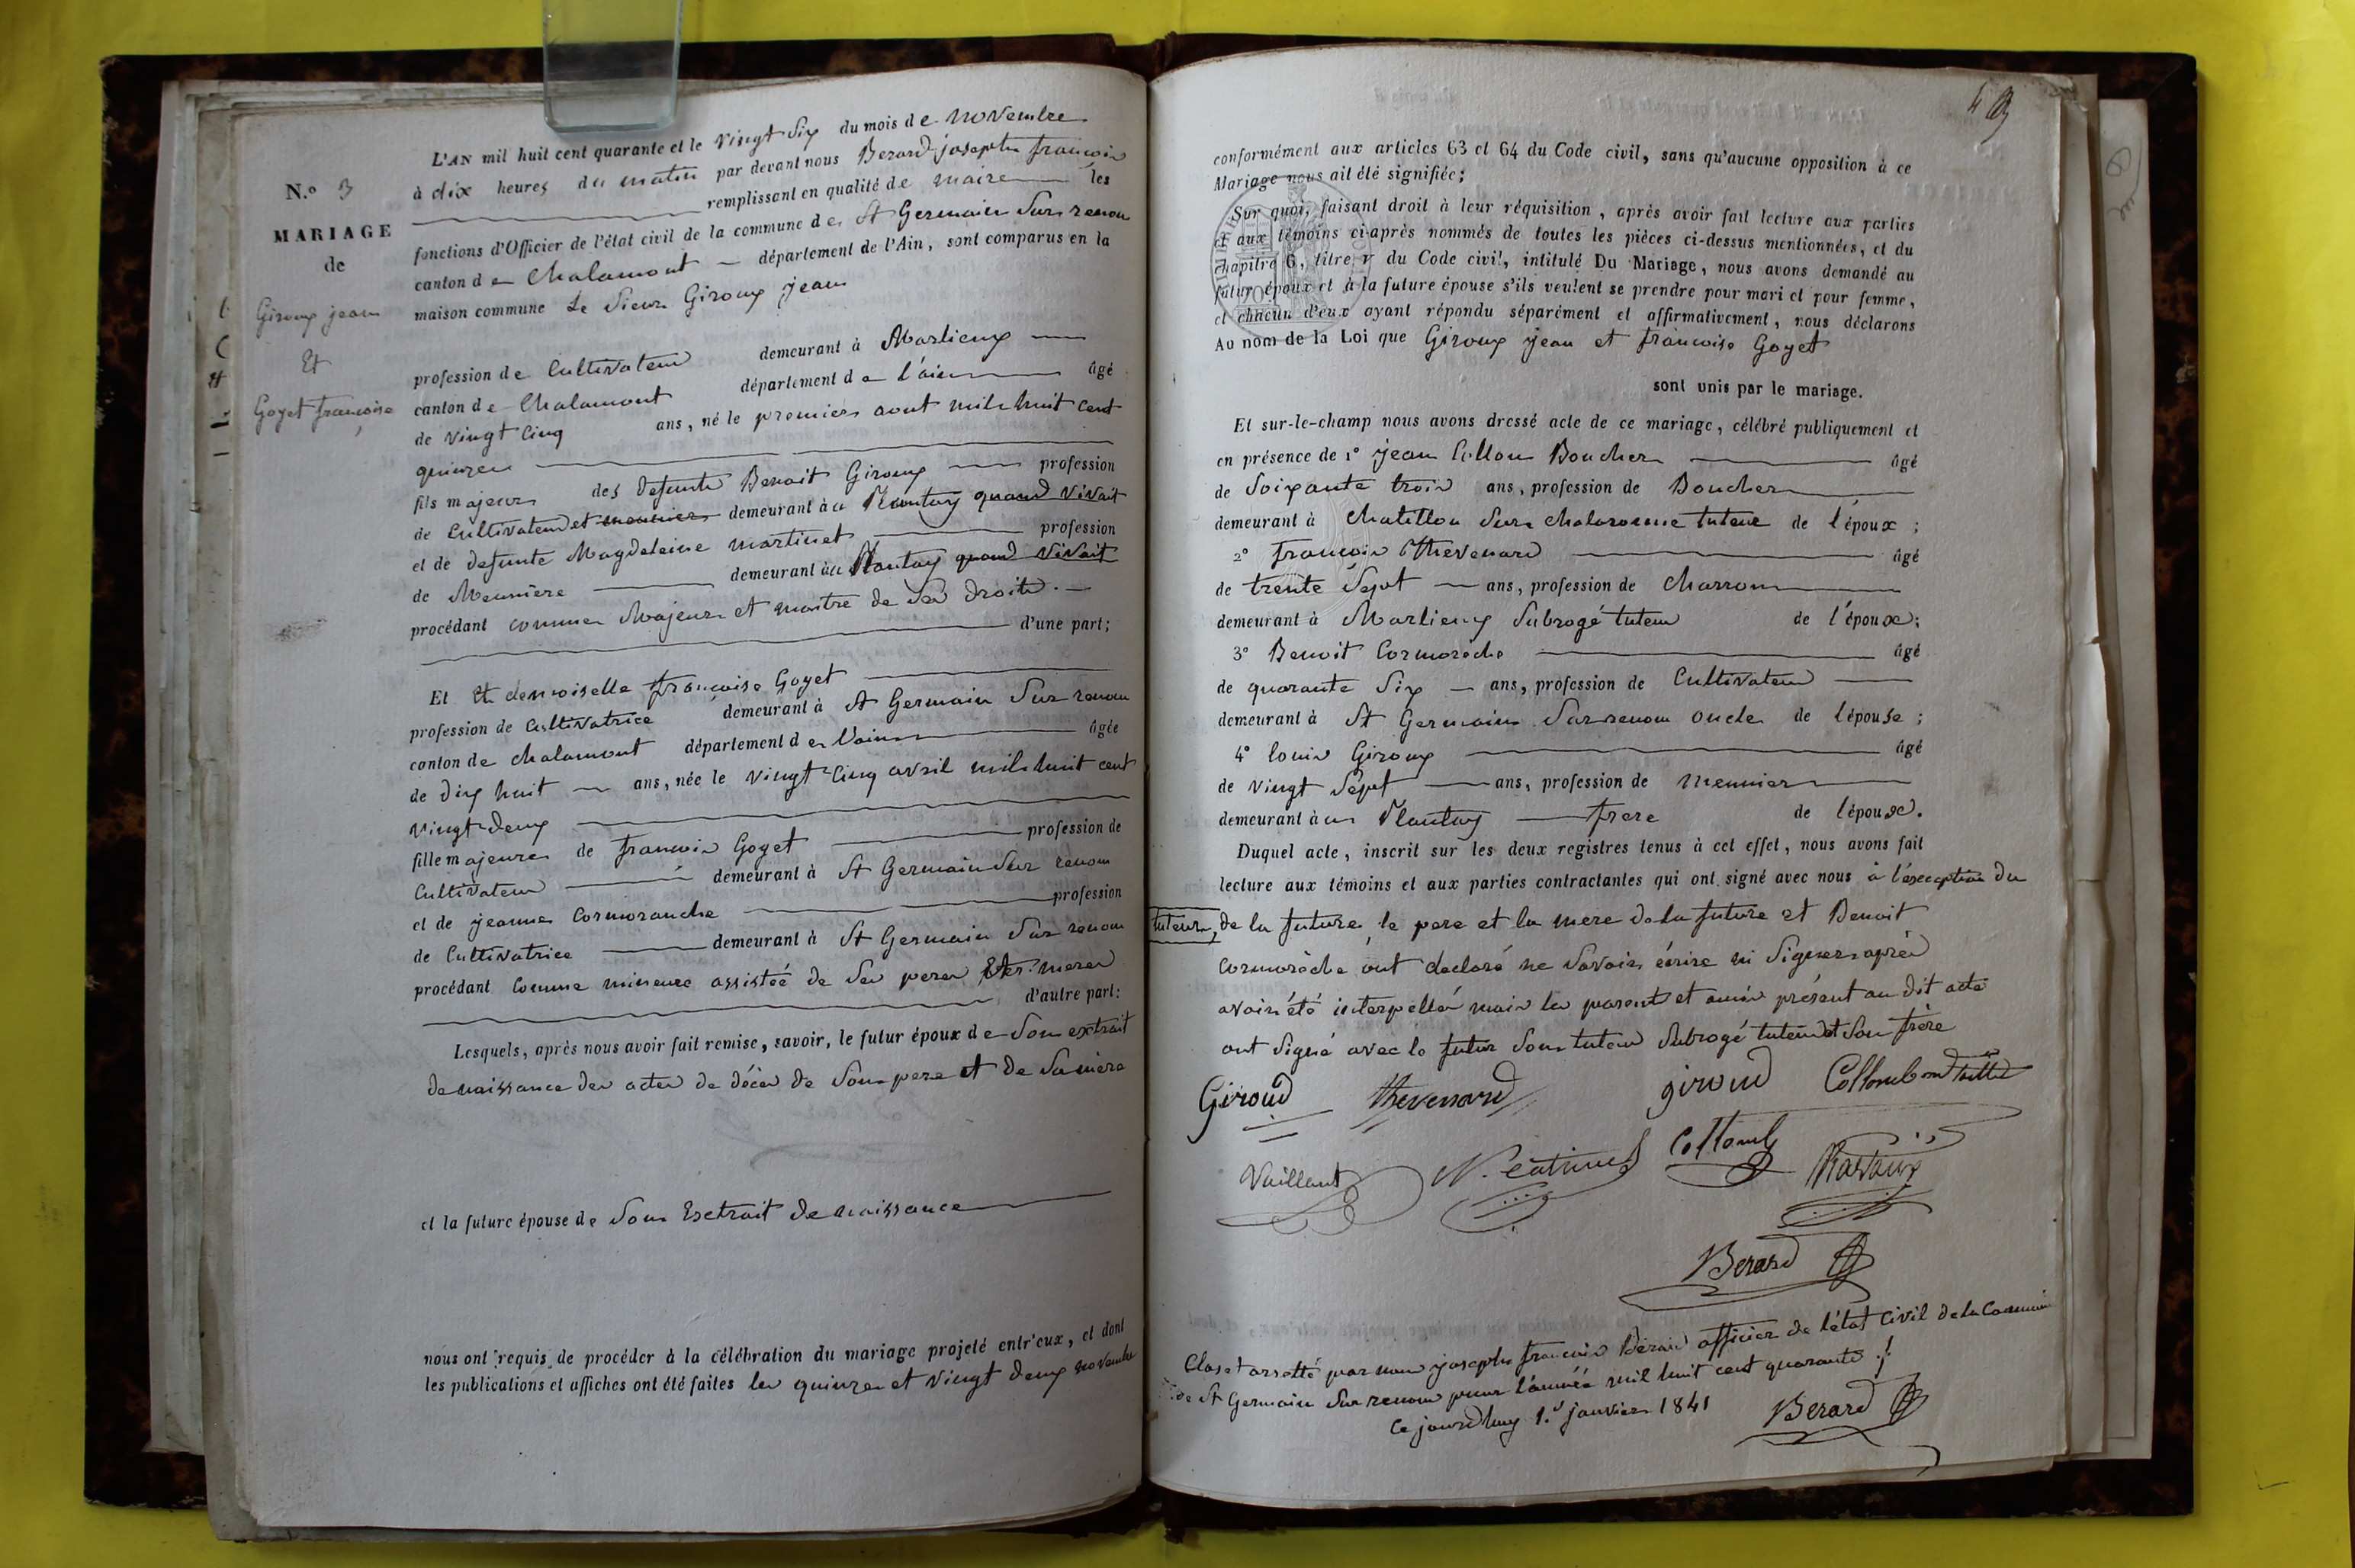 L'AN mil huit cent quarante et le vingt Six du mois de novembre
N.º 3
à dix heures du matin par devant nous Berard joseph françois
remplissant en qualité de maire les
MARIAGE
fonctions d'Officier de l'état civil de la commune de St Germain Sur renon
de
canton de Chalamont département de l'Ain, sont comparus en la
Giroux jean
maison commune Le Sieur Giroux jean
Et
profession de Cultivateur demeurant à Marlieux
Goyet françoise
canton de Chalamont département de l'ain âgé
de vingt Cinq ans, né le premier aout mil huit Cent
quinze
fils majeur des defunts Benoit Giroux profession
de Cultivateur et meunier demeurant à au Plantay quand vivait
et de defunte Magdeleine martinet profession
de Meunière demeurant àau Plantay quand vivait
procédant comme Majeur et maitre de Ses droits.
d'une part;
Et Et demoiselle françoise Goyet
profession de Cultivatrice demeurant à St Germain Sur renon
canton de chalamont département de l'ain âgée
de dix huit ans, née le vingt Cinq avril mil huit cent
vingt deux
fille majeure de francois Goyet profession de
Cultivateur demeurant à St Germain Sur renon
et de jeanne Cormoranche profession
de Cultivatrice demeurant à St Germain Sur renon
procédant Comme mineure assistée de Ses pere Et mere
d'autre part:
Lesquels, après nous avoir fait remise, savoir, le futur époux de Son extrait
de naissance des actes de décès de Son pere et de Sa mère
et la future épouse de Son Extrait de naissance
nous ont requis de procéder à la célébration du mariage projeté entr'eux, et dont
les publications et affiches ont été faites les quinze et vingt deux novembre
conformément aux articles 63 et 64 du Code civil, sans qu'aucune opposition à ce
Mariage nous ait été signifiée;
Sur quoi, faisant droit à leur réquisition, après avoir fait lecture aux parties
et aux témoins ci-après nommés de toutes les pièces ci-dessus mentionnées, et du
chapitre 6, titre v du Code civil, intitulé Du Mariage, nous avons demandé au
futur époux et à la future épouse s'ils veulent se prendre pour mari et pour femme,
et chacun d'eux ayant répondu séparément et affirmativement, nous déclarons
Au nom de la Loi que Giroux jean et françoise Goyet
sont unis par le mariage.
Et sur-le-champ nous avons dressé acte de ce mariage, célébré publiquement et
en présence de 1° jean Boucher âgé
de Soixante trois ans, profession de Boucher
demeurant à Chatillon Sur Chalaronne tuteur de l'époux;
2° francois Thevenard âgé
de trente Sept ans, profession de Charron
demeurant à Marlieux Subrogé tuteur de l'époux;
3° Benoit Cormorèche âgé
de quarante Six ans, profession de Cultivateur
demeurant à St Germain Sur renon oncle de l'épouse;
4° louis Giroux âgé
de vingt Sept ans, profession de meunier
demeurant àau Plantay frere de l'époux.
Duquel acte, inscrit sur les deux registres tenus à cet effet, nous avons fait
lecture aux témoins et aux parties contractantes qui ont signé avec nous à l'exception du
tuteur, de la future, le pere et la mere de la future et Benoit
Cormorèche ont declaré ne Savoir écrire ni Signer après
avoir été interpellés mais les parents et amis présent au dit acte
ont Signé avec le futur Son tuteur Subrogé tuteur et Son frère
Giroud thevenard giroud
Vaillant Collomb
Berard
Clos et arretté par nous joseph francois Berard officier de l'état Civil de la Commune
de St Germain Sur renon pour l'année mil huit cent quarante
Ce jourd'huy 1.er janvier 1841 Berard